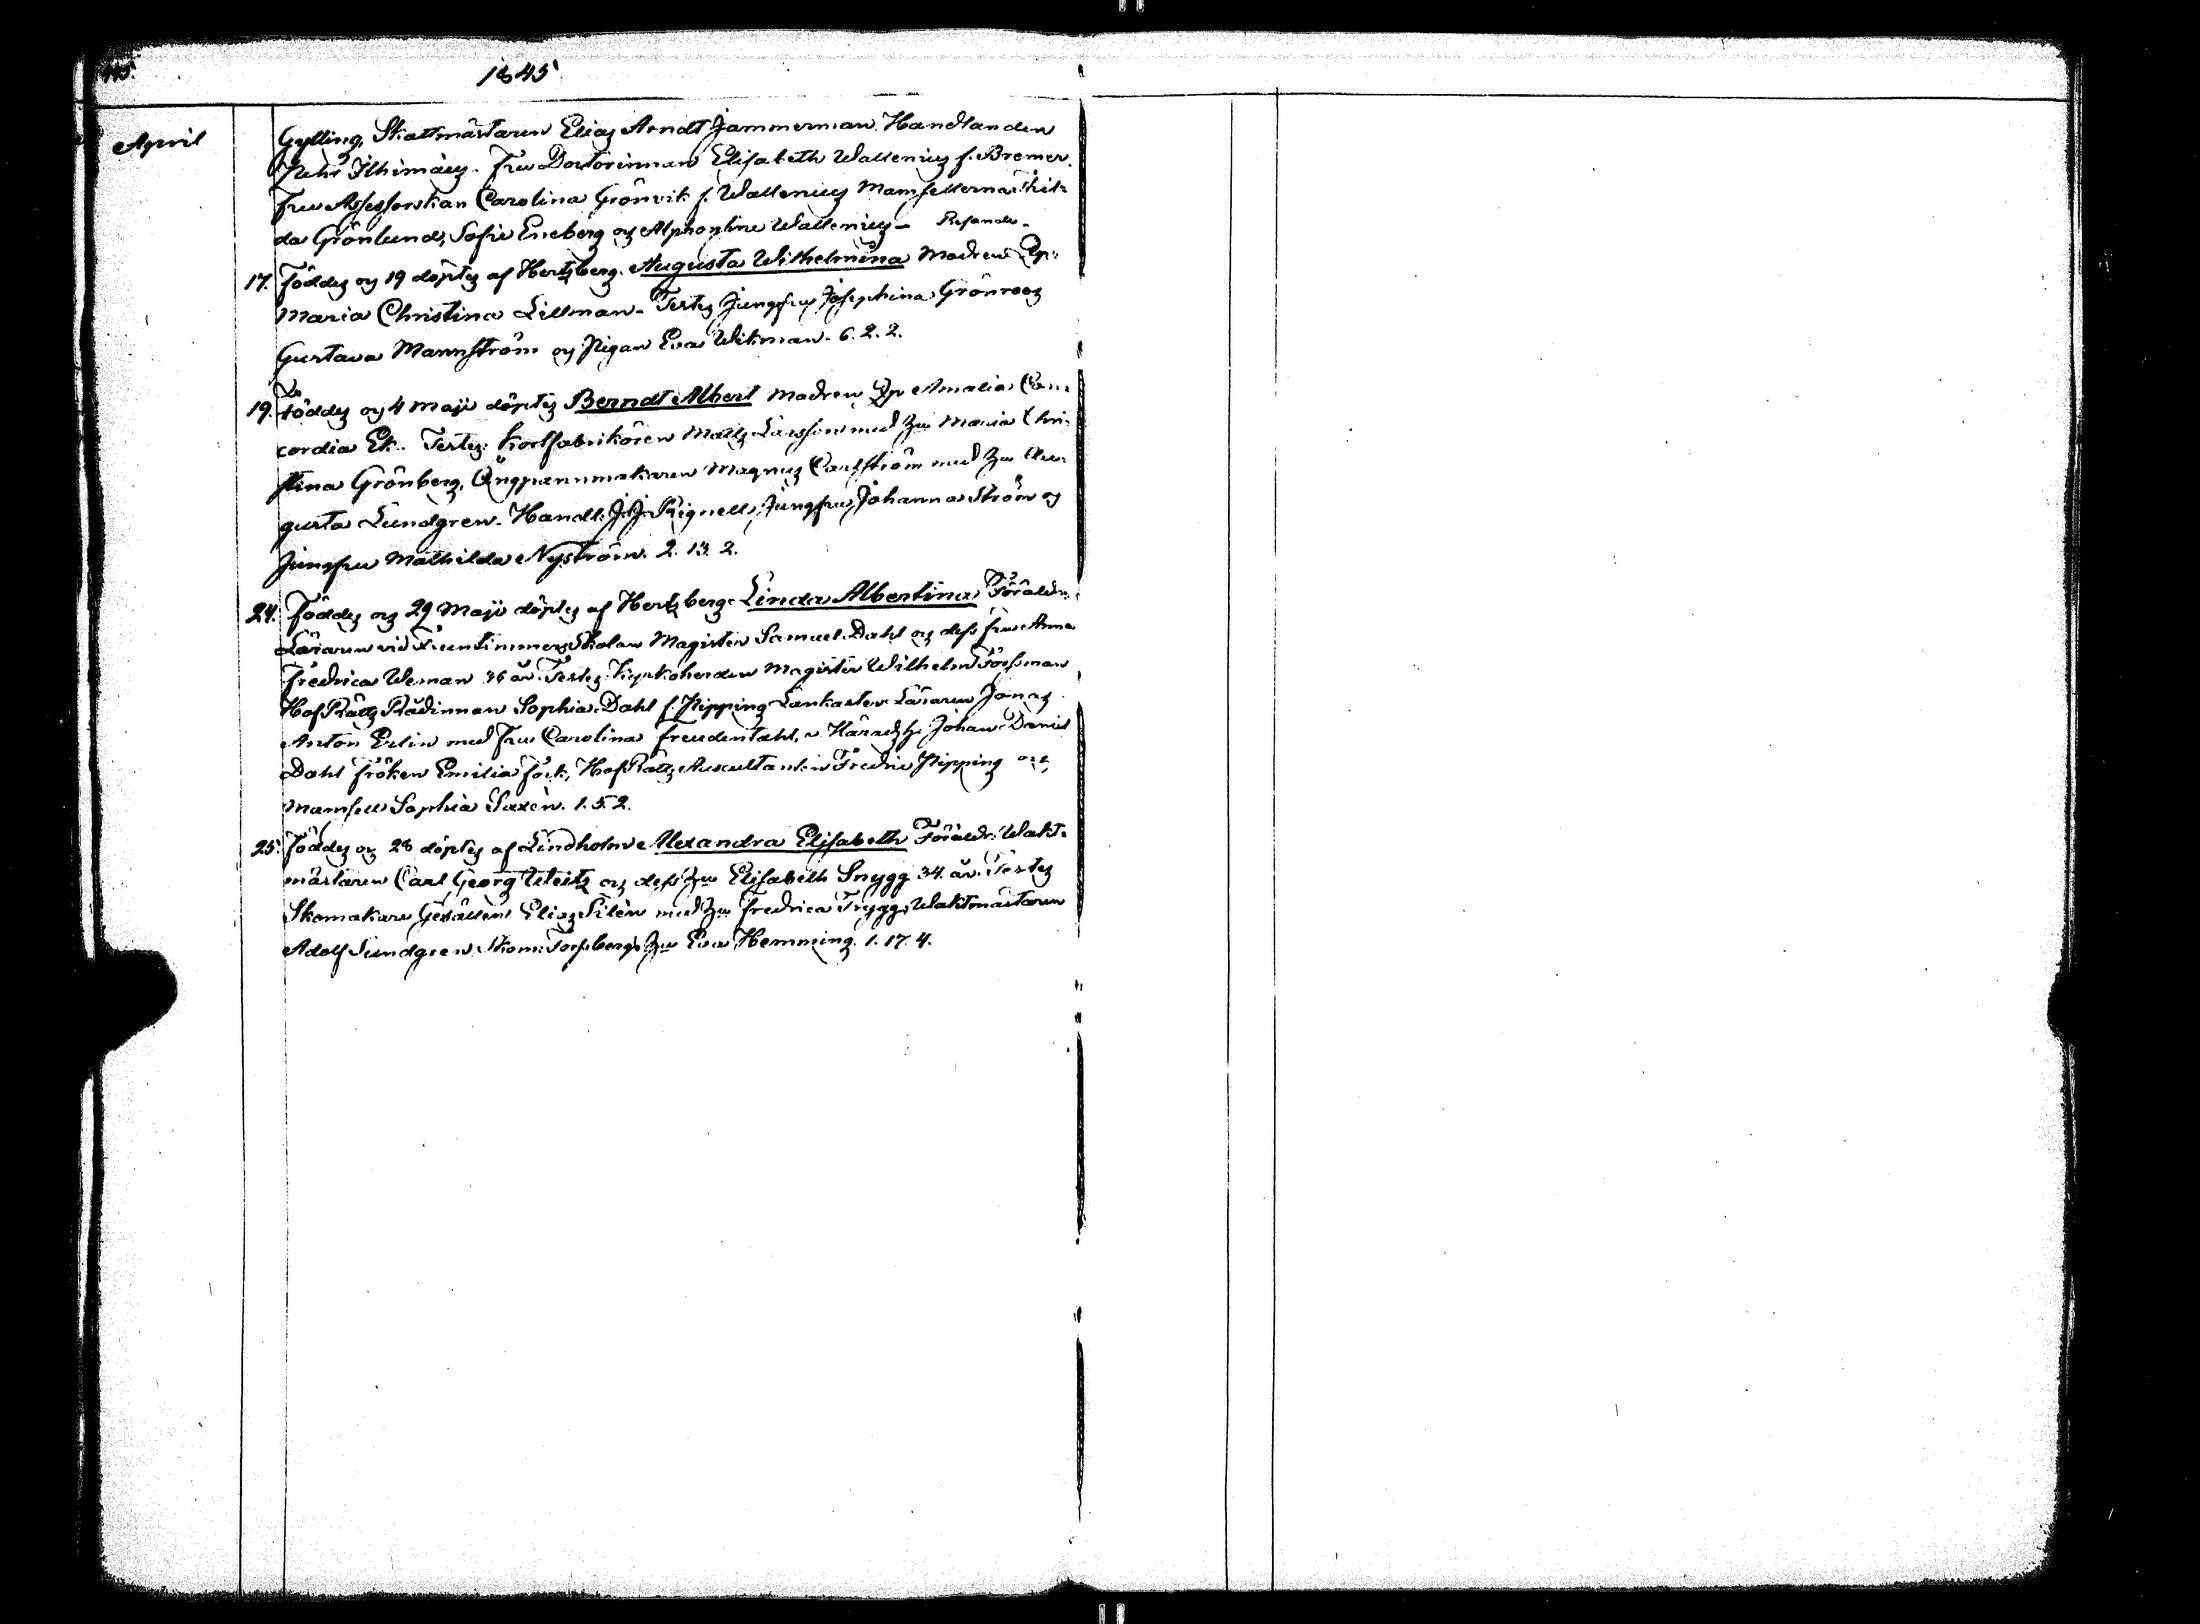 145.
1845
April
Gylling, Skattmästaren Elias Arndt Jammerman. Handlanden
Ithimäus. Fru Doctorinnan Elisabeth Wallenius f. Bremer.
Fru Assessorskan Carolina Grönvik f. Wallenius Mamsellerna Hil-
da Grönlund, Sofie Eneberg og Alphonsine Wallenius –
17. Föddes og 19 döptes af Hertzberg. Augusta Wilhelmina Modren Qp:
Maria Christina Lillman. Testes Jungfru Josephina Grönroos
Gustava Mannström og Pigan Eva Wikman. 6. 2. 2.
19. Föddes og 4 Maji döptes Berndt Albert Modren Qp Amalia Con-
cordia Ek. Testes: Kortfabrikören Matts Larsson med hu Maria Chri-
stina Grönberg, Ångpannmakaren Magnus Carlström med hu Au-
gusta Lundgren. Handl: J. J. Rignell, Jungfru Johanna Ström og
Jungfru Mathilda Nyström. 2. 13. 2.
24. Föddes og 29 Maji döptes af Hertzberg. Linda Albertina Föräldr:
Läraren vid Fruntimmers Skolan Magister Samuel Dahl og dess fru Anna
Fredrica Weman 36 år. Testes: Kyrkoherden Magister Wilhelm Forsman
HofRätts Rådinnan Sophia Dahl f. Pipping Lankaster Läraren Jonas
Anton Erlin med Fru Carolina Freudentahl, v. Häradsh: Johan Daniel
Dahl Fröken Emilia Fock, HofRätts Auscultanten Fredric Pipping og
Mamsell Sophia Saxén. 1. 5. 2.
25. Föddes og 28 döptes af Lindholm Alexandra Elisabeth Föräldr: Wakt-
mästaren Carl Georg Weitz og dess hu Elisabeth Snygg 34. år. Testes
Skomakare Gesällen Elias Silén med hu Fredrica Trygg, Waktmästaren
Adolf Sundgren, Skom: Forsbergs hu Eva Hemming. 1. 17. 4.